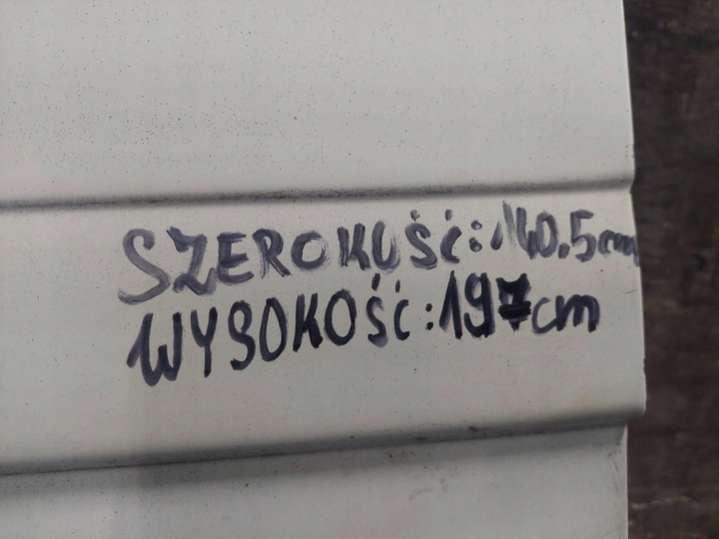 SZEROKOŚĆ: 140.5cm
WYSOKOŚĆ: 197cm